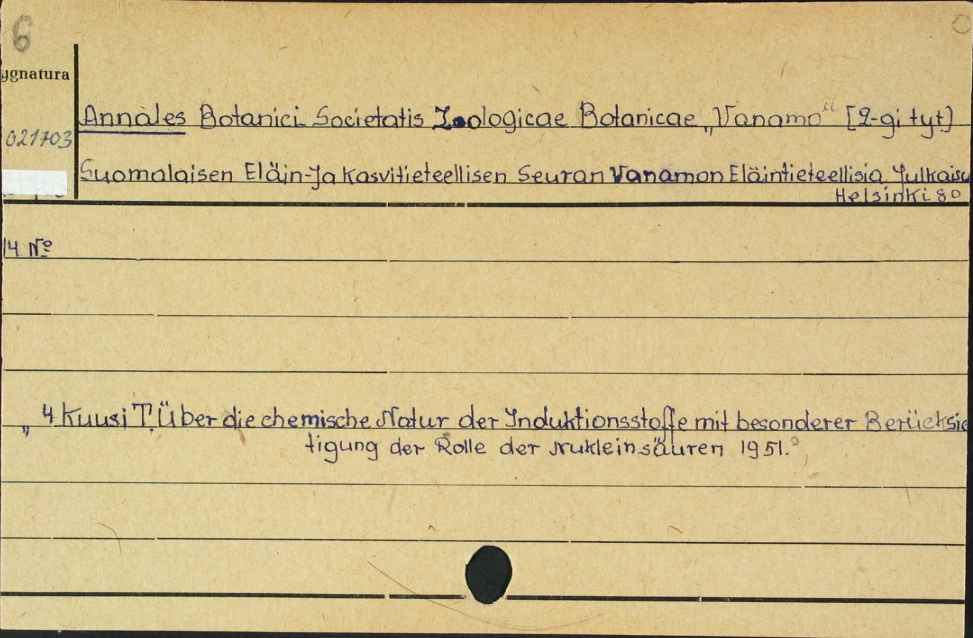 6
ygnatura
Annales Botanici Societatis Zoologicae Botanicae „Vanamo" [2-gi tyt]
021703
Suomalaisen Eläin-Ja Kasvitieteellisen Seuran Vanamon Eläintieteellisiä Julkaisu
Helsinki 8o
14 No
„ 4 Kuusi T. Über die chemische Natur der Induktionsstoffe mit besonderer Berücksic
tigung der Rolle der Nukleinsäuren 1951.